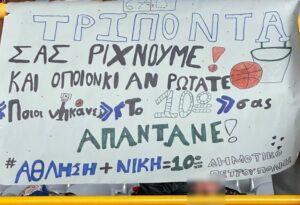 ΤΡΙΠΟΝΤΑ
ΣΑΣ ΡΙΧΝΟΥΜΕ!
ΚΑΙ ΟΠΟΙΟΝ ΚΙ ΑΝ ΡΩΤΑΤΕ
"Ποιοι νίκανε" "Το 10ο" σας
ΑΠΑΝΤΑΝΕ!
#ΑΘΛΗΣΗ+ΝΙΚΗ=10ο ΔΗΜΟΤΙΚΟ
ΠΕΤΡΟΥΠΟΛΗΣ